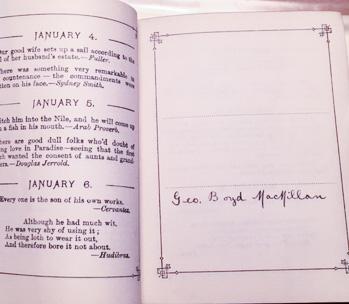 JANUARY 4.
our good wife sets up a sail according to the
l of her husband's estate.—Fuller.
here was something very remarkable in
countenance — the commandments were
tten on his face.—Sydney Smith.
JANUARY 5.
itch him into the Nile, and he will come up
h a fish in his mouth.—Arab Proverb.
here are good dull folks who'd doubt of
ng love in Paradise—seeing that the first
ch wanted the consent of aunts and grand-
ers.—Douglas Jerrold.
JANUARY 6.
Every one is the son of his own works.
—Cervantes.
Although he had much wit,
He was very shy of using it;
As being loth to wear it out,
And therefore bore it not about.
—Hudibras.
Geo. Boyd MacMillan